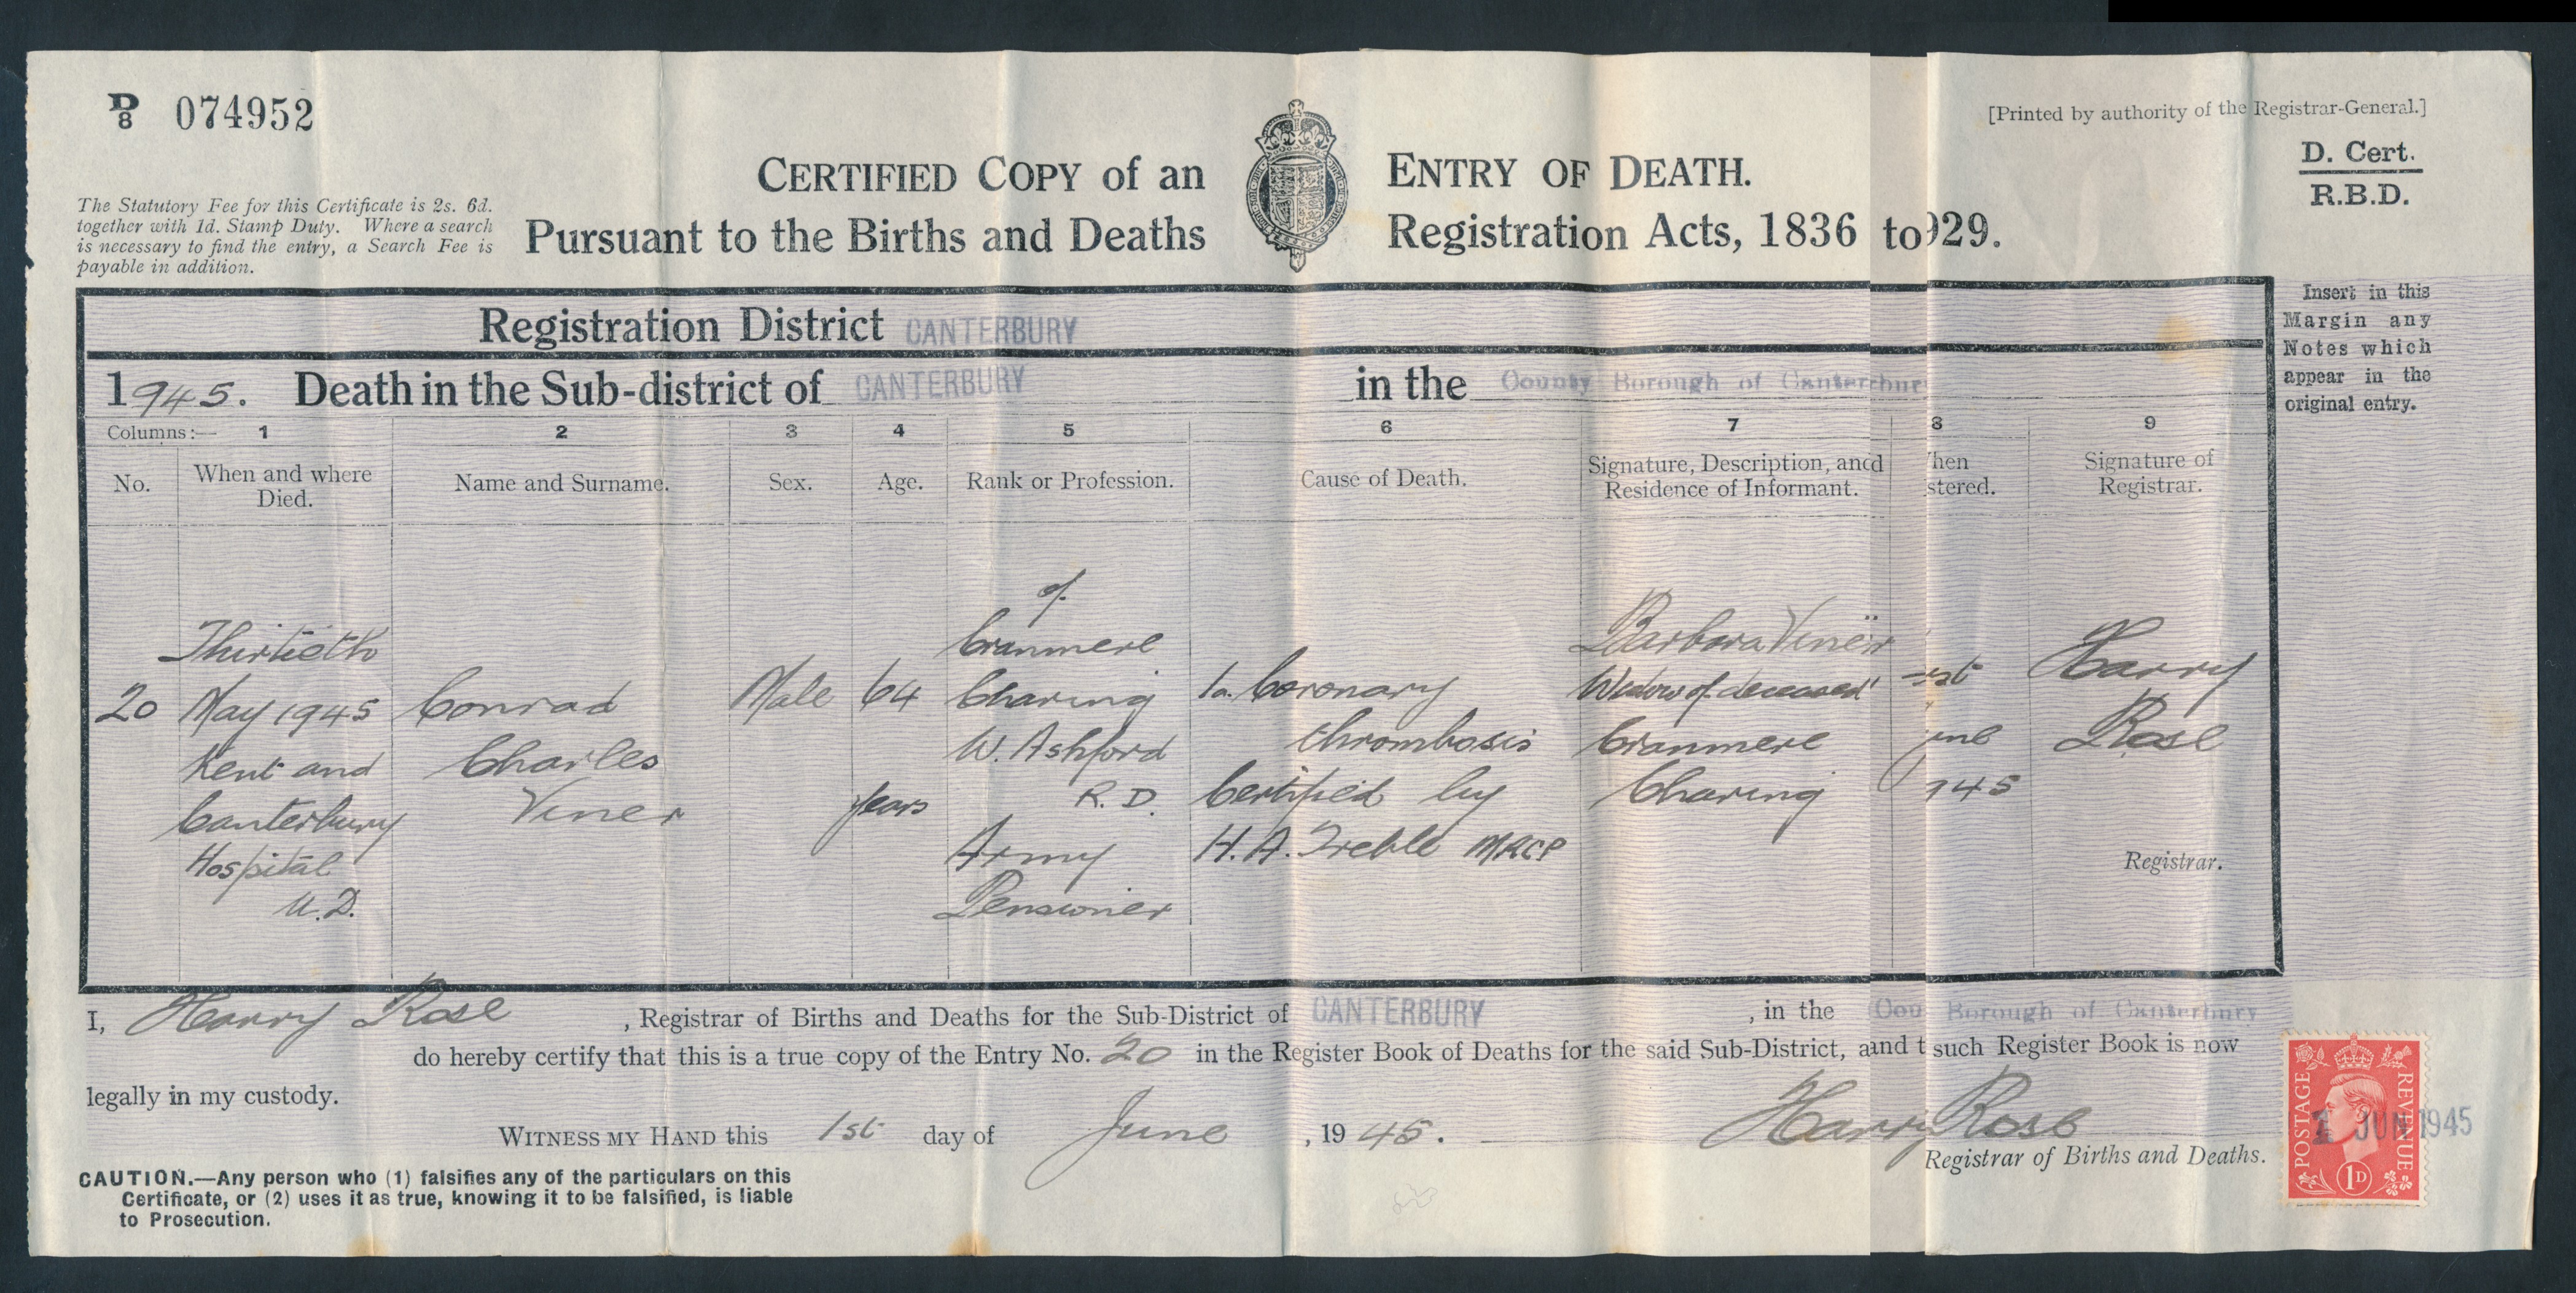 D/8 074952
[Printed by authority of the Registrar-General.]
D. Cert.
R.B.D.
The Statutory Fee for this Certificate is 2s. 6d.
together with 1d. Stamp Duty. Where a search
is necessary to find the entry, a Search Fee is
payable in addition.
CERTIFIED COPY of an ENTRY OF DEATH.
Pursuant to the Births and Deaths Registration Acts, 1836 to 929.
Insert in this
Margin any
Notes which
appear in the
original entry.
Registration District CANTERBURY
1945. Death in the Sub-district of CANTERBURY in the County Borough of Canterbury
Columns:— 1 2 3 4 5 6 7 8 9
No.
When and where
Died.
Name and Surname.
Sex.
Age.
Rank or Profession.
Cause of Death.
Signature, Description, and
Residence of Informant.
hen
stered.
Signature of
Registrar.
20
Thirtieth
May 1945
Kent and
Canterbury
Hospital
U.D.
Conrad
Charles
Viner
Male
64
years
of
Cranmere
Charing
W. Ashford
R.D.
Army
Pensioner
1a. Coronary
thrombosis
Certified by
H.A. Treble MRCP
Barbara Viner
Widow of deceased
Cranmere
Charing
st
une
945
Harry
Rose
Registrar.
I, Harry Rose, Registrar of Births and Deaths for the Sub-District of CANTERBURY, in the Cou Borough of Canterbury
do hereby certify that this is a true copy of the Entry No. 20 in the Register Book of Deaths for the said Sub-District, and t such Register Book is now
legally in my custody.
WITNESS MY HAND this 1st day of June, 1945. Harry Rose
Registrar of Births and Deaths.
CAUTION.—Any person who (1) falsifies any of the particulars on this
Certificate, or (2) uses it as true, knowing it to be falsified, is liable
to Prosecution.
POSTAGE
REVENUE
1D
1 JUN 1945